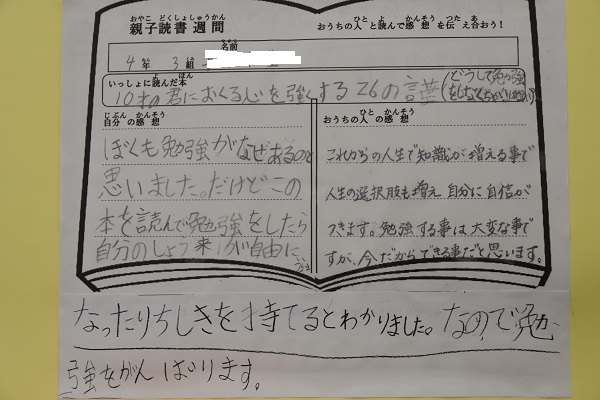 おやこ どくしょしゅうかん
親子読書週間
おうちの人と読んで感想を伝え合おう!
4年 3組 名前
いっしょに読んだ本
10才の君におくる心を強くする26の言葉(どうして勉強
をしなくちゃいけないの?)
自分の感想
ぼくも勉強がなぜあるのと
思いました。だけどこの
本を読んで勉強をしたら
自分のしょう来が自由に
なったりちしきを持てるとわかりました。なので勉
強をがんばります。
おうちの人の感想
これからの人生で知識が増える事で
人生の選択肢も増え 自分に自信が
つきます。勉強する事は大変な事で
すが、今だからできる事だと思います。